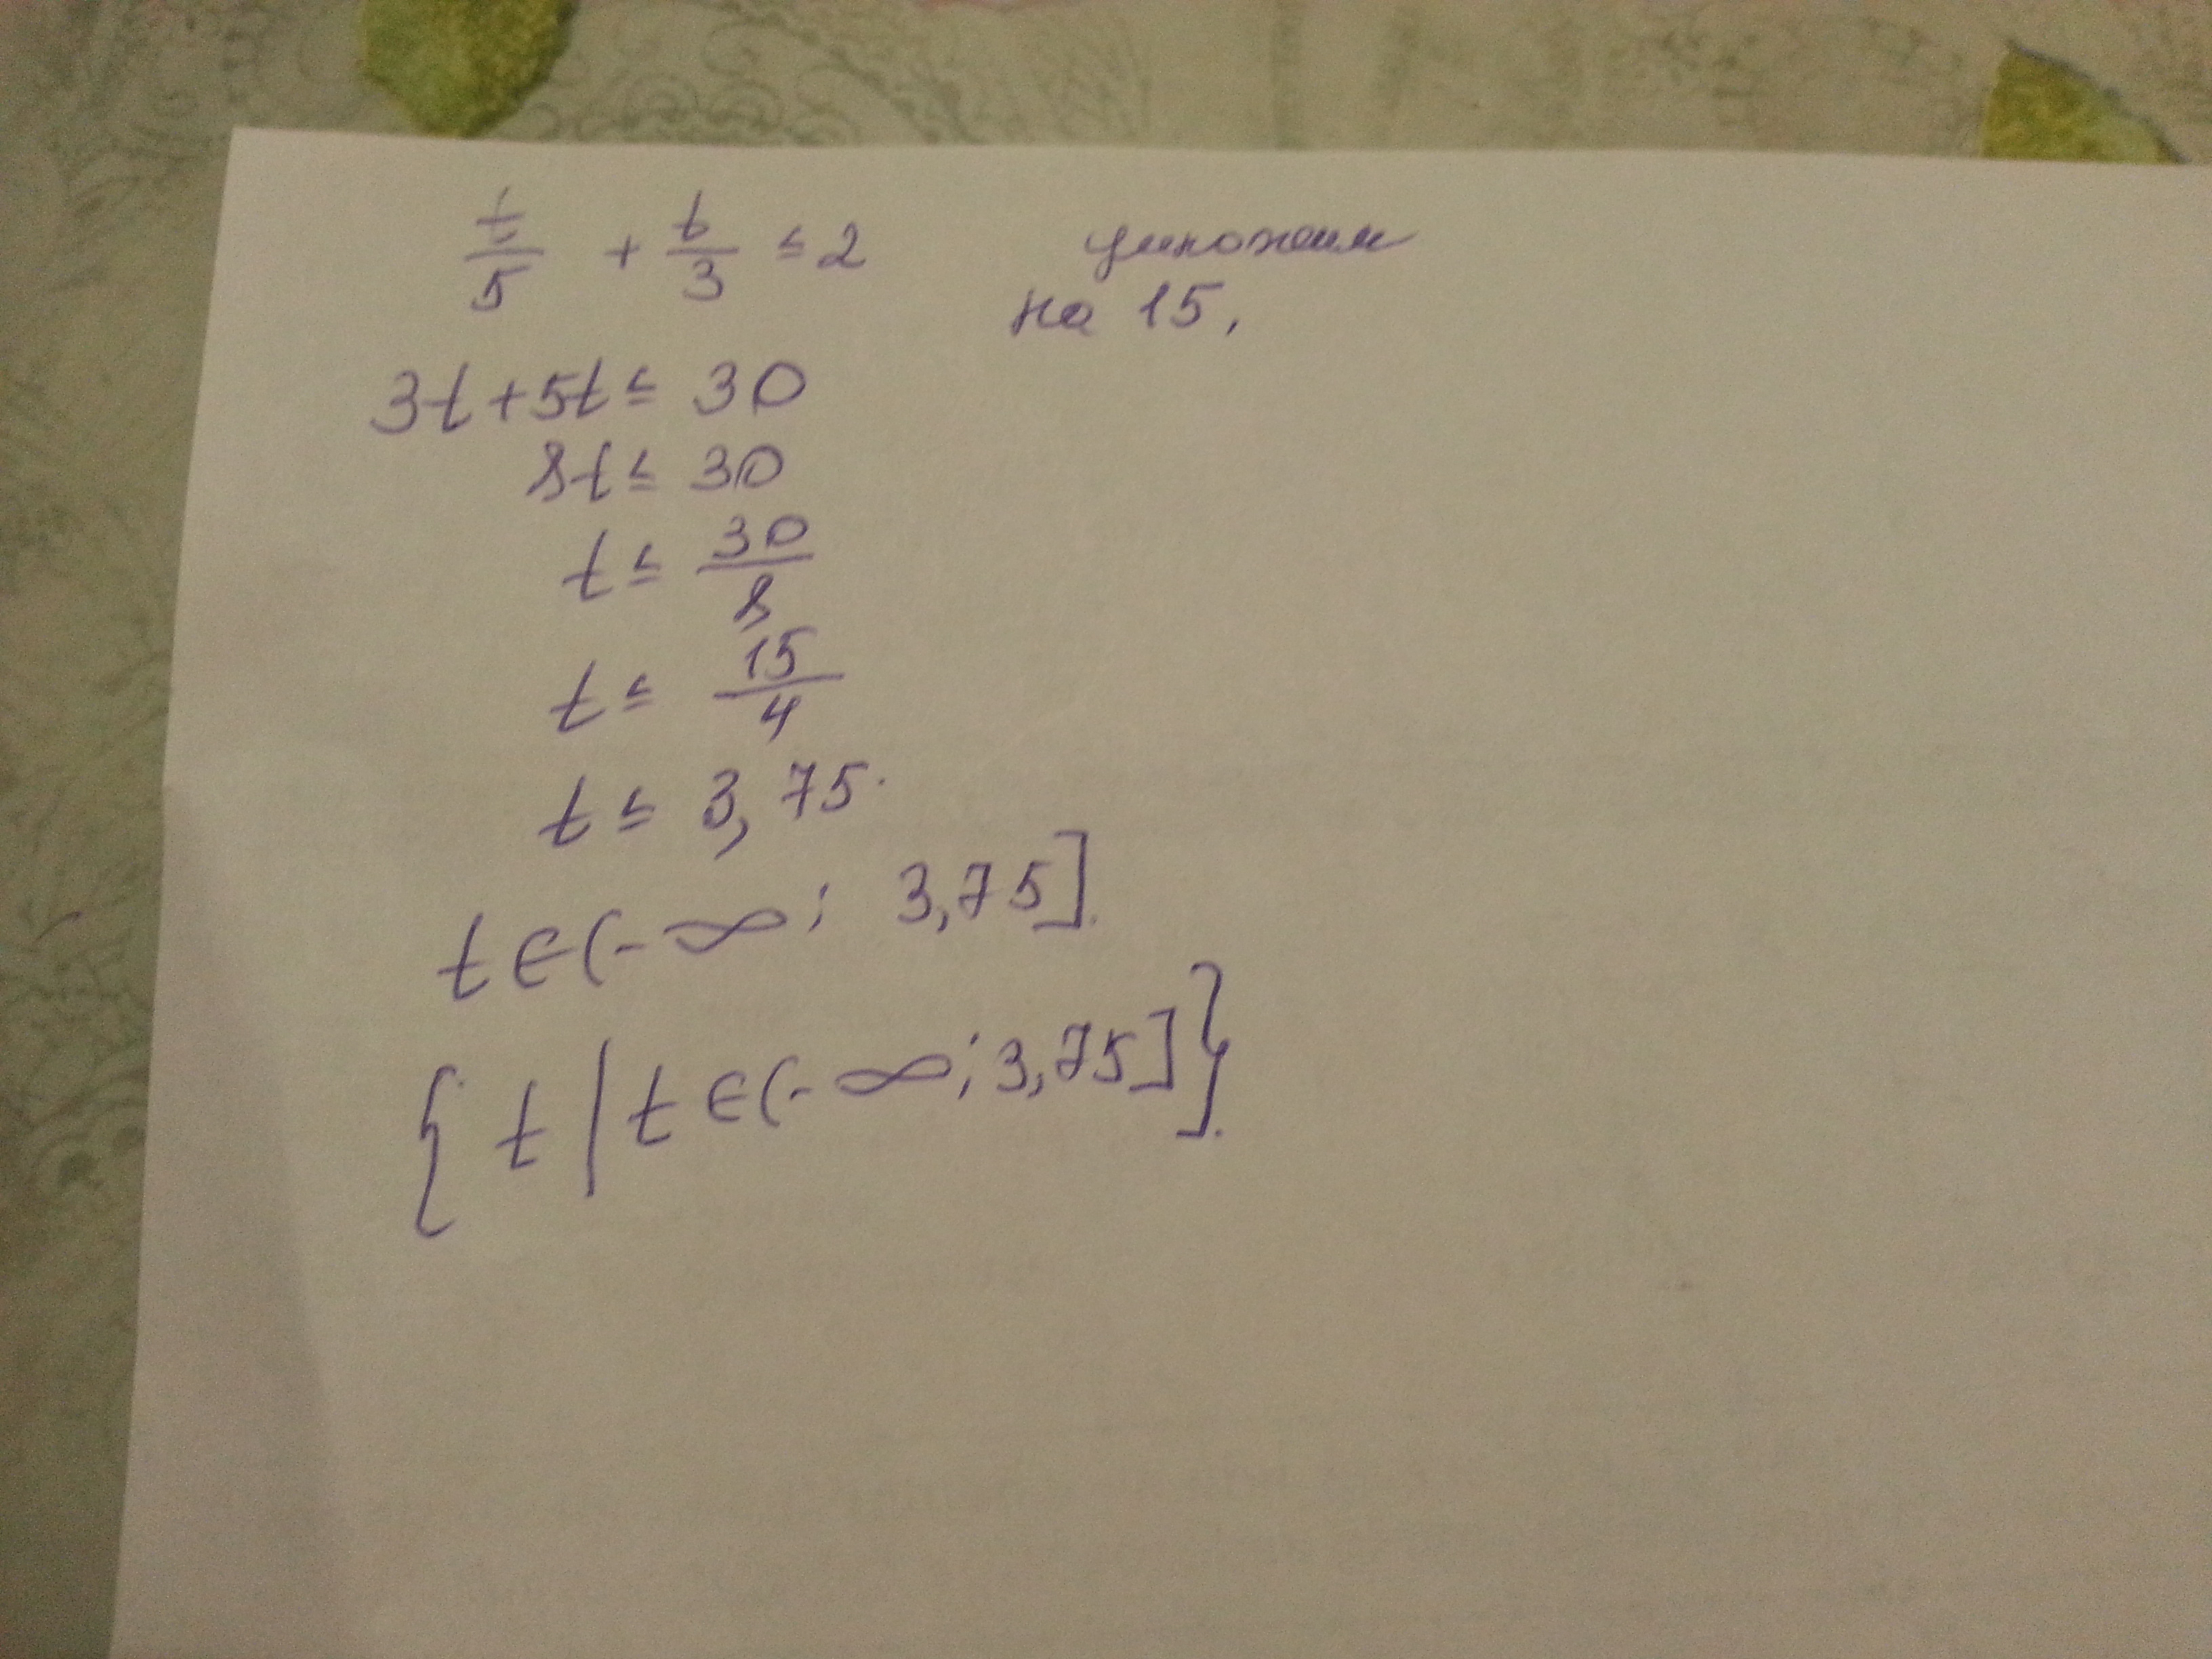 t/5 + t/3 ≤ 2 умножим
на 15.
3t + 5t ≤ 30
8t ≤ 30
t ≤ 30/8
t ≤ 15/4
t ≤ 3,75.
t ∈ (-∞; 3,75].
{t | t ∈ (-∞; 3,75]}.